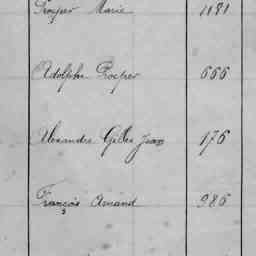 Prosper Marie 1181
Adolphe Prosper 666
Alexandre Gilles Jean 176
François Amand 986